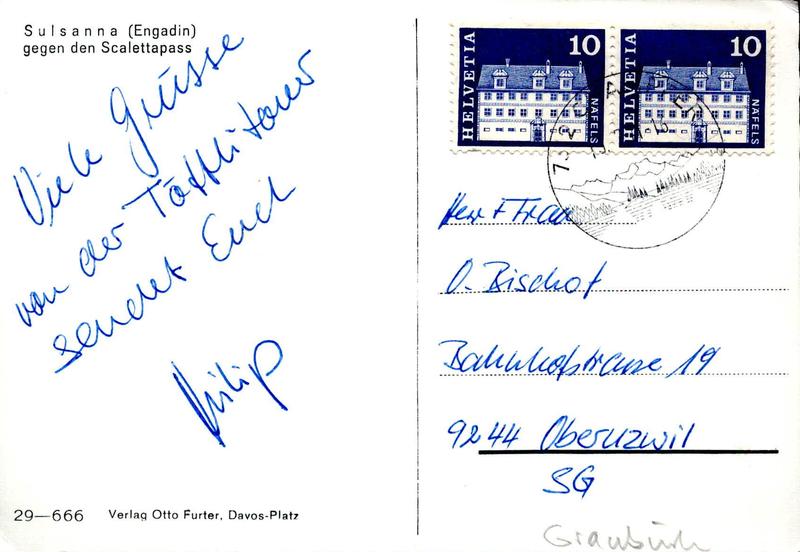 Sulsanna (Engadin)
gegen den Scalettapass
Viele Grüsse
von der Töfflitour
sendet Euch
Philip
29—666 Verlag Otto Furter, Davos-Platz
HELVETIA 10 NÄFELS
HELVETIA 10 NÄFELS
Herr + Frau
O. Bischof
Bahnhofstrasse 19
9244 Oberuzwil
SG